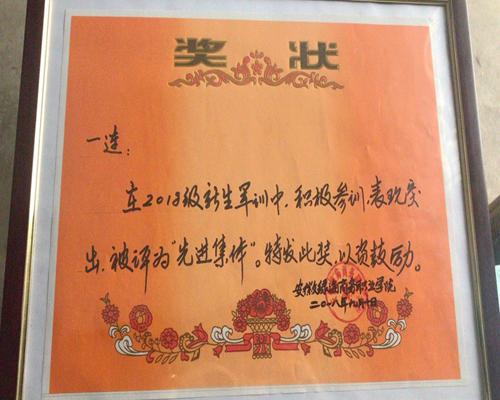 奖状
一连：
在2018级新生军训中，积极参训，表现突
出，被评为“先进集体”。特发此奖，以资鼓励。
安徽绿海商务职业学院
二〇一八年九月十日